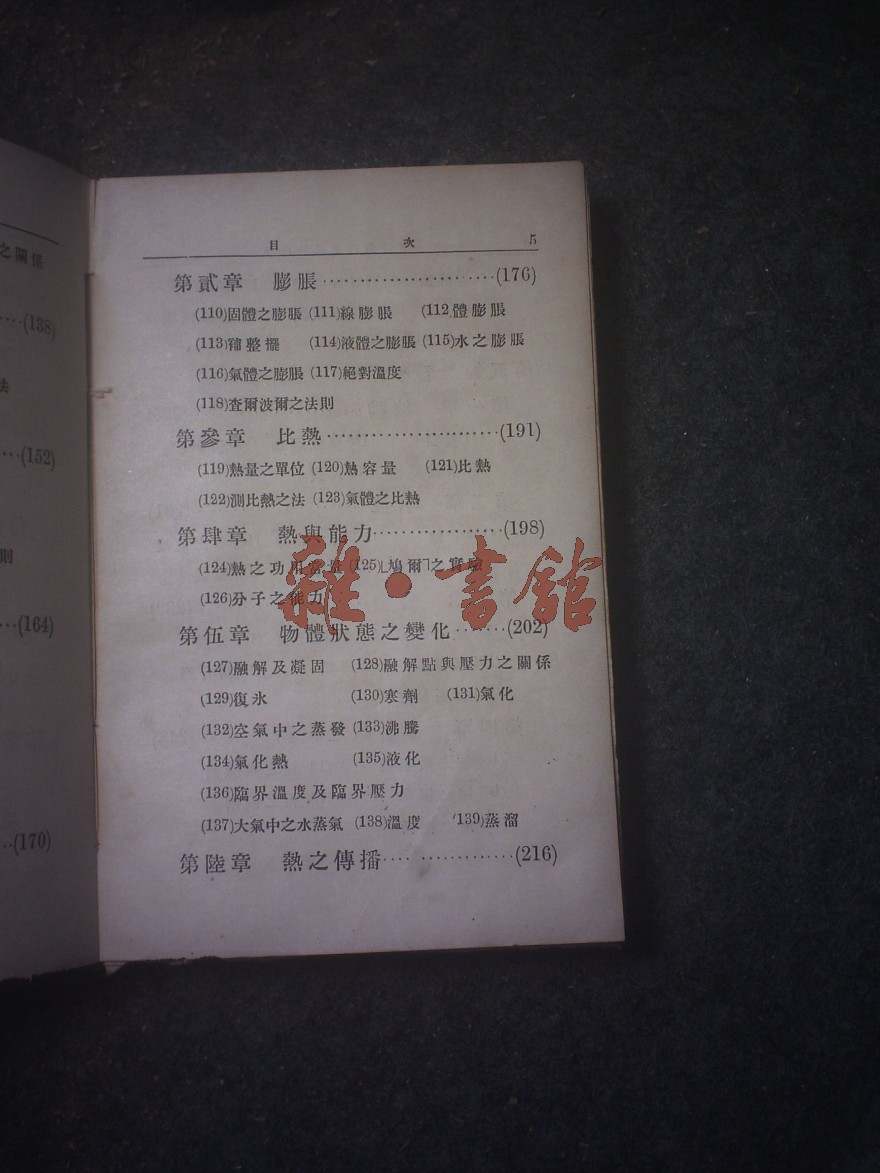 之關係
(138)
法
(152)
則
(164)
(170)
目 次 5
第貳章 膨脹 (176)
(110)固體之膨脹 (111)線膨脹 (112 體膨脹
(113)補整擺 (114)液體之膨脹 (115)水之膨脹
(116)氣體之膨脹 (117)絕對溫度
(118)查爾波爾之法則
第參章 比熱 (191)
(119)熱量之單位 (120)熱容量 (121)比熱
(122)測比熱之法 (123)氣體之比熱
第肆章 熱與能力 (198)
(124)熱之功用當量 (125)「鳩爾」之實驗
(126)分子之能力
雜·書館
第伍章 物體狀態之變化 (202)
(127)融解及凝固 (128)融解點與壓力之關係
(129)復氷 (130)寒劑 (131)氣化
(132)空氣中之蒸發 (133)沸騰
(134)氣化熱 (135)液化
(136)臨界溫度及臨界壓力
(137)大氣中之水蒸氣 (138)溫度 (139)蒸溜
第陸章 熱之傳播 (216)